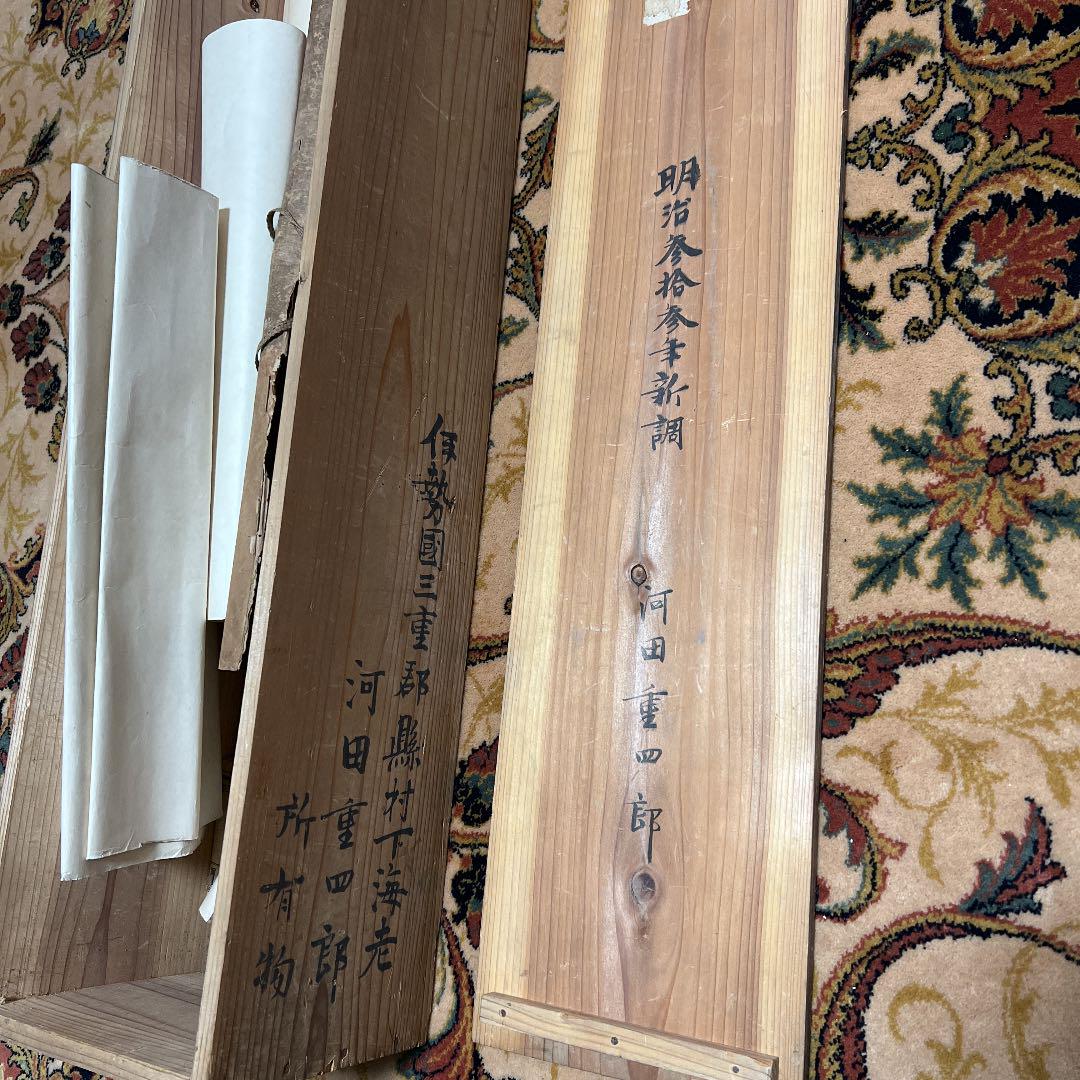 明治参拾参年新調
河田重四郎
伊勢國三重郡縣村下海老
河田重四郎
所有物